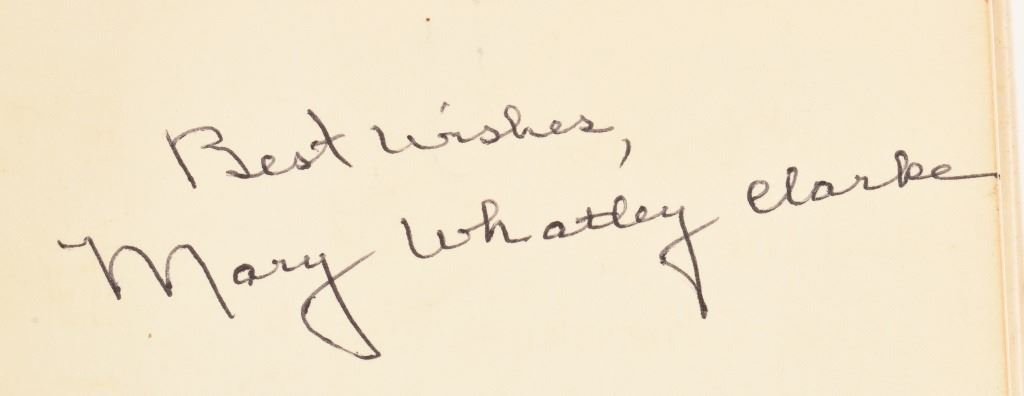 Best Wishes,
Mary Whatley Clarke